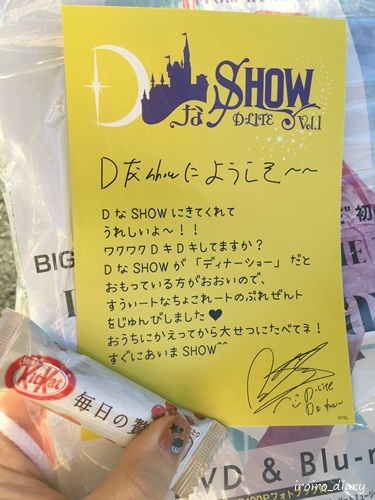 DなSHOW
D-LITE Vol.1
Dなshowにようこそ〜〜
DなSHOWにきてくれて
うれしいよ〜!!
ワクワクDキDキしてますか?
DなSHOWが「ディナーショー」だと
おもっている方がおおいので、
すうぃートなちょこれートのぷれぜんト
をじゅんびしました♥
おうちにかえってから大せつにたべてネ!
すぐにあいまSHOW^^
D-Lite
Dなshow〜
BIG
初
KitKat
毎日の贅
VD & Blu-r
iroiro_diary